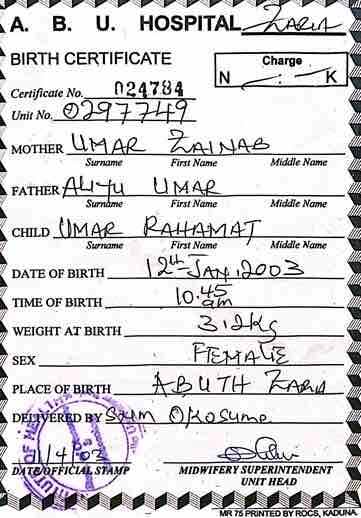 A. B. U. HOSPITAL Zaria
BIRTH CERTIFICATE
Charge
N : K
Certificate No. 024784
Unit No. 0297749
MOTHER UMAR ZAINAB
Surname First Name Middle Name
FATHER ALIYU UMAR
Surname First Name Middle Name
CHILD UMAR RAHAMAT
Surname First Name Middle Name
DATE OF BIRTH 12th JAN, 2003
TIME OF BIRTH 10.45 am
WEIGHT AT BIRTH 3.2kg
SEX FEMALE
PLACE OF BIRTH ABUTH ZARIA
DELIVERED BY
DATE/OFFICIAL STAMP MIDWIFERY SUPERINTENDENT
UNIT HEAD
MR 75 PRINTED BY ROCS, KADUNA.